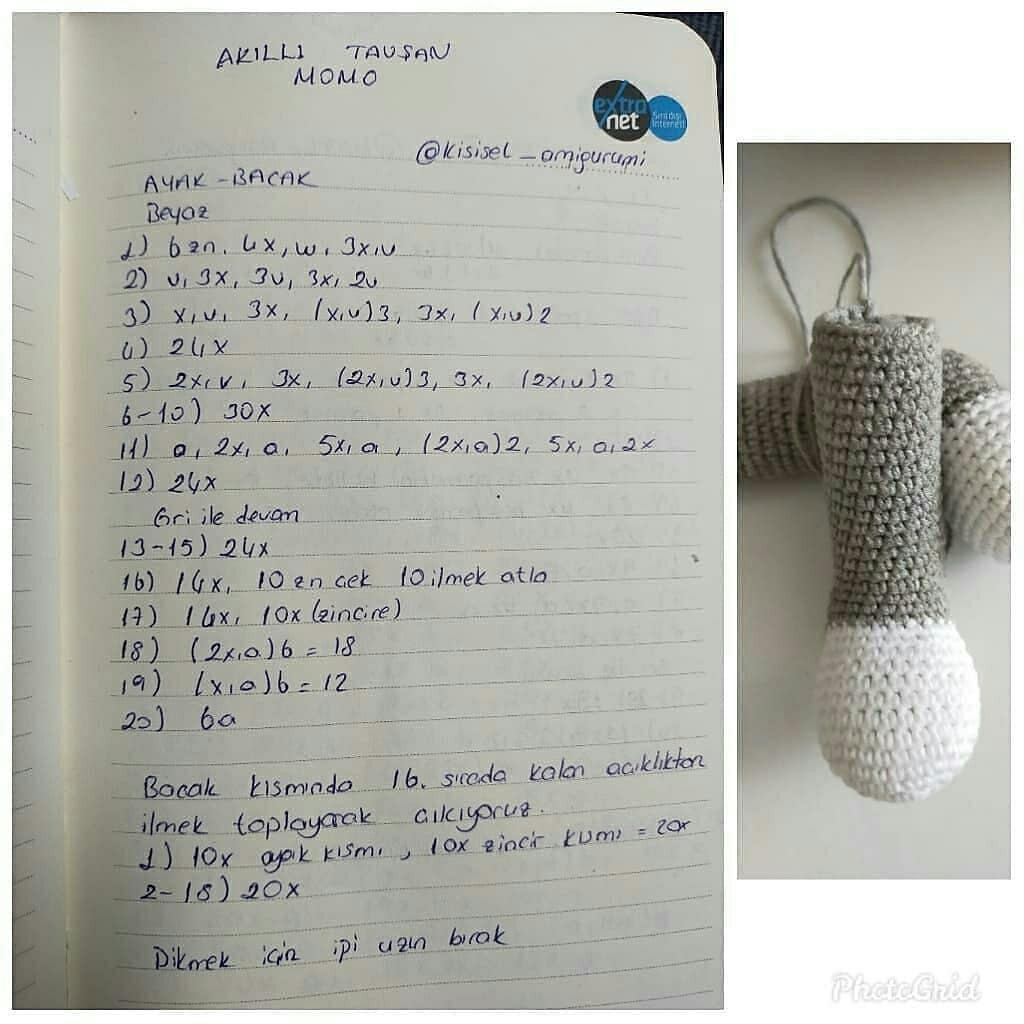 AKILLI TAVŞAN
MOMO
extra net
Sınırdışı
İnternet!
@kisisel_amigurumi
AYAK-BACAK
Beyaz
1) 6zn. 4x, w, 3x,v
2) v, 3x, 3v, 3x, 2v
3) x,v, 3x, (x,v)3, 3x, (x,v)2
4) 24x
5) 2x,v, 3x, (2x,v)3, 3x, (2x,v)2
6-10) 30x
11) a, 2x, a, 5x, a, (2x,a)2, 5x, a, 2x
12) 24x
Gri ile devam
13-15) 24x
16) 14x, 10zn çek 10 ilmek atla
17) 14x, 10x (zincire)
18) (2x,a)6 = 18
19) (x,a)6 = 12
20) 6a
Bacak kısmında 16. sırada kalan açıklıktan
ilmek toplayarak çıkıyoruz.
1) 10x ayak kısmı, 10x zincir kısmı = 20x
2-18) 20x
Dikmek için ipi uzun bırak
PhotoGrid